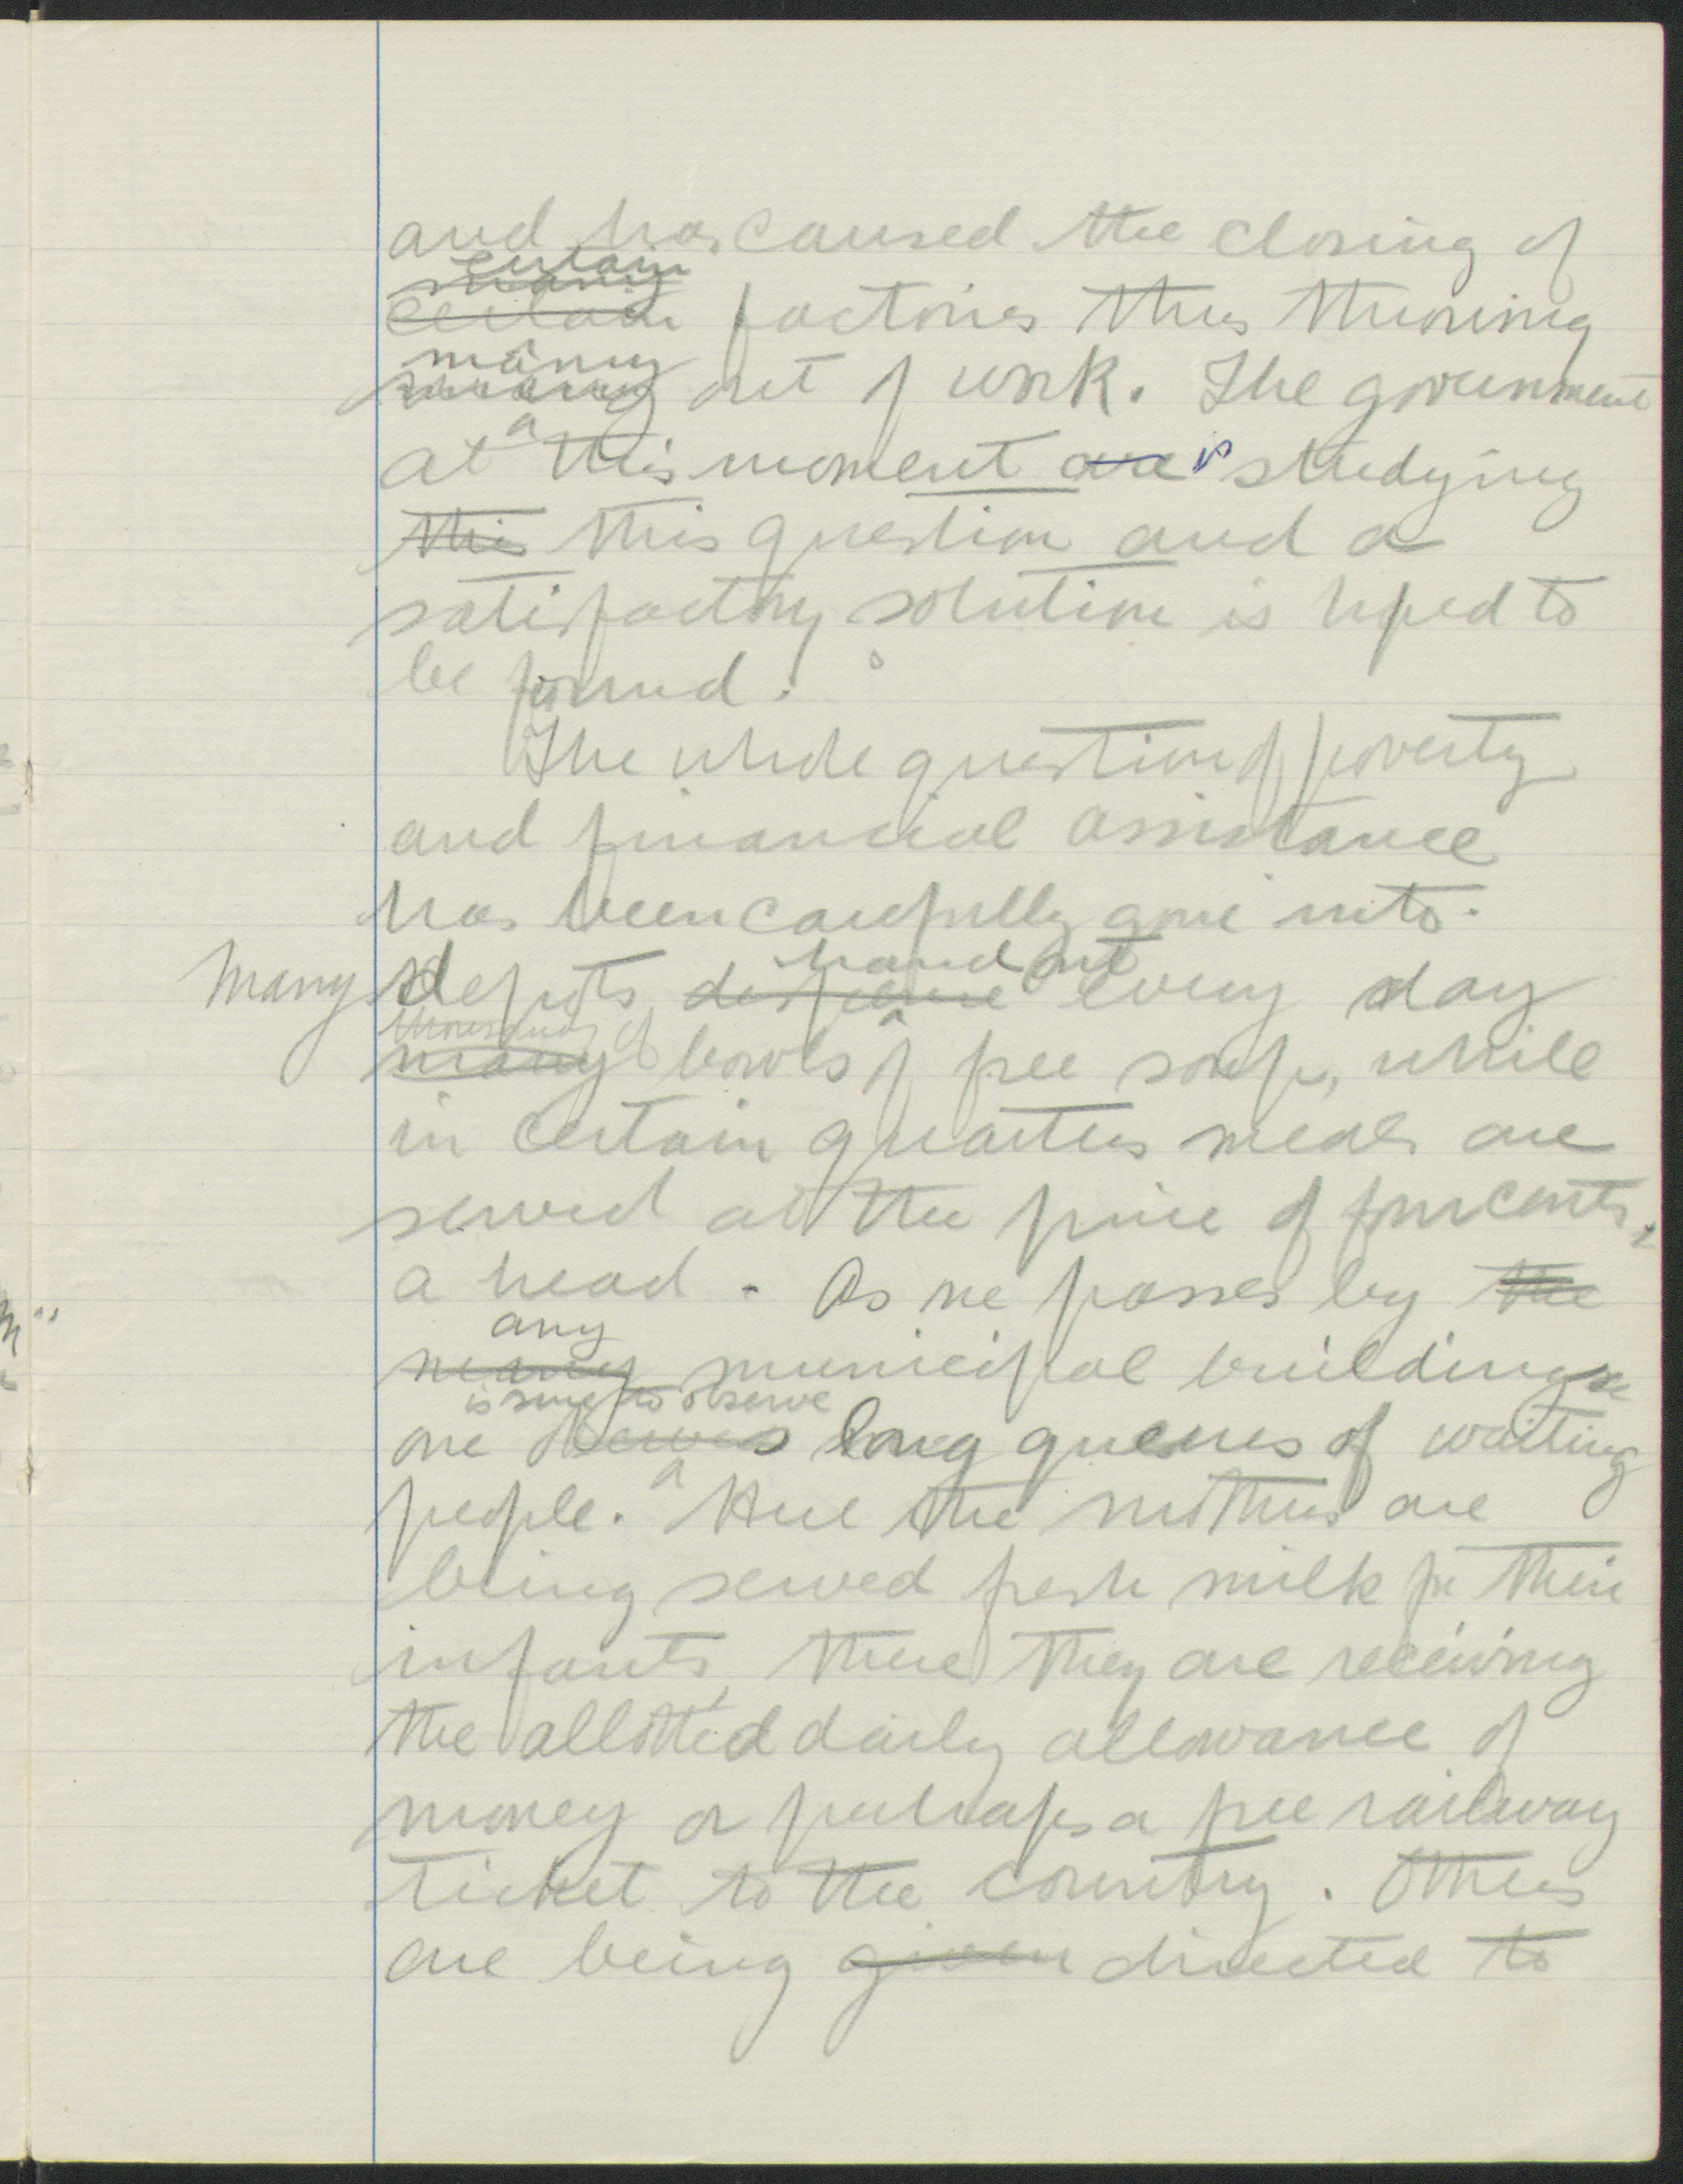 and has caused the closing of
certain
many
certain factories thus throwing
many
many out of work. The government
at this moment are is studying
this this question and a
satisfactory solution is hoped to
be found.
The whole question of poverty
and financial assistance
has been carefully gone into.
hand out
Many depots dispense every day
thousands of
many bowls of free soup, while
in certain quarters meals are
served at the price of four cents
a head. As one passes by the
any
many municipal building
is sure to observe
one observes long queues of waiting
people. Here the mothers are
being served fresh milk for their
infants, there they are receiving
the allotted daily allowance of
money or perhaps a free railway
ticket to the country. Others
are being given directed to